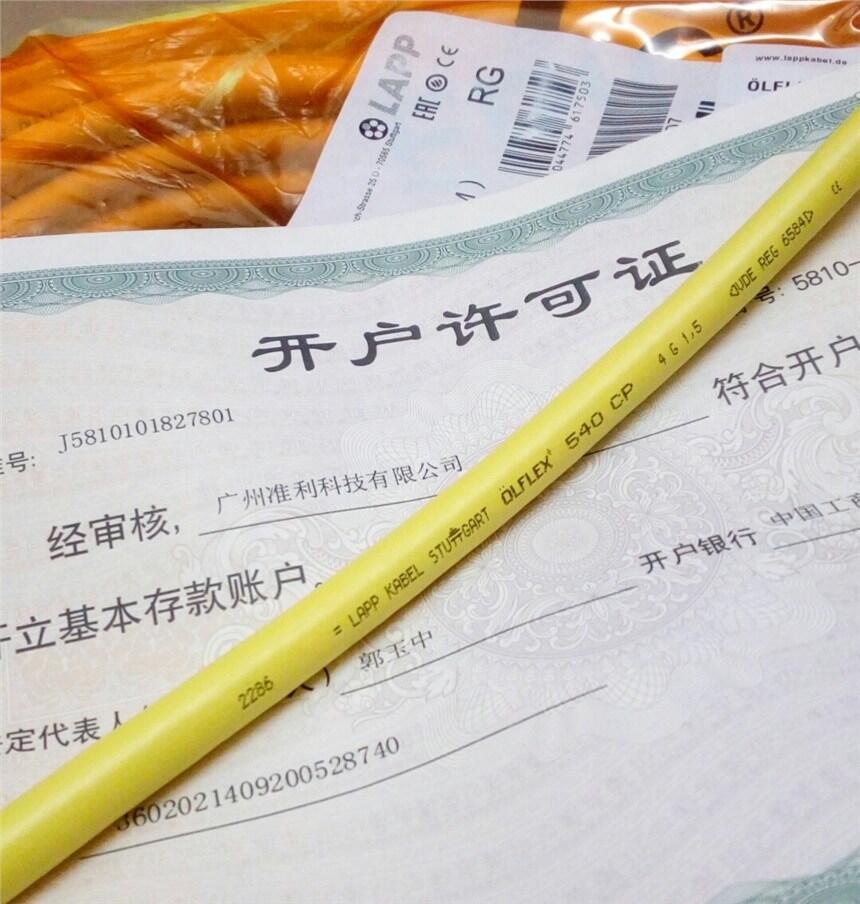 ®
www.lappkabel.de
LAPP
EAC CE
RG
044774 617503
开户许可证
号: 5810-
J5810101827801
号:
经审核, 广州准利科技有限公司 符合开户
立基本存款账户。 开户银行 中国工商
定代表人 郭玉中
3602021409200528740
2286 = LAPP KABEL STUTTGART ÖLFLEX® 540 CP 4 G 1,5 ◁VDE REG 6584▷ CE